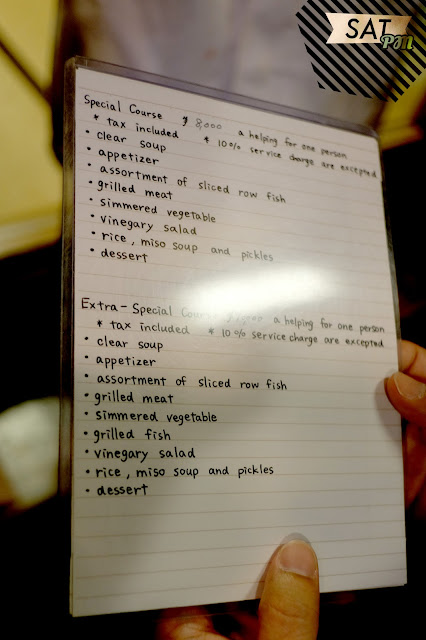 SAT
PM
Special Course ¥ 8,000 a helping for one person
* tax included * 10% service charge are excepted
• clear soup
• appetizer
• assortment of sliced row fish
• grilled meat
• simmered vegetable
• vinegary salad
• rice, miso soup and pickles
• dessert
Extra-Special a helping for one person
* tax included * 10% service charge are excepted
• clear soup
• appetizer
• assortment of sliced row fish
• grilled meat
• simmered vegetable
• grilled fish
• vinegary salad
• rice, miso soup and pickles
• dessert